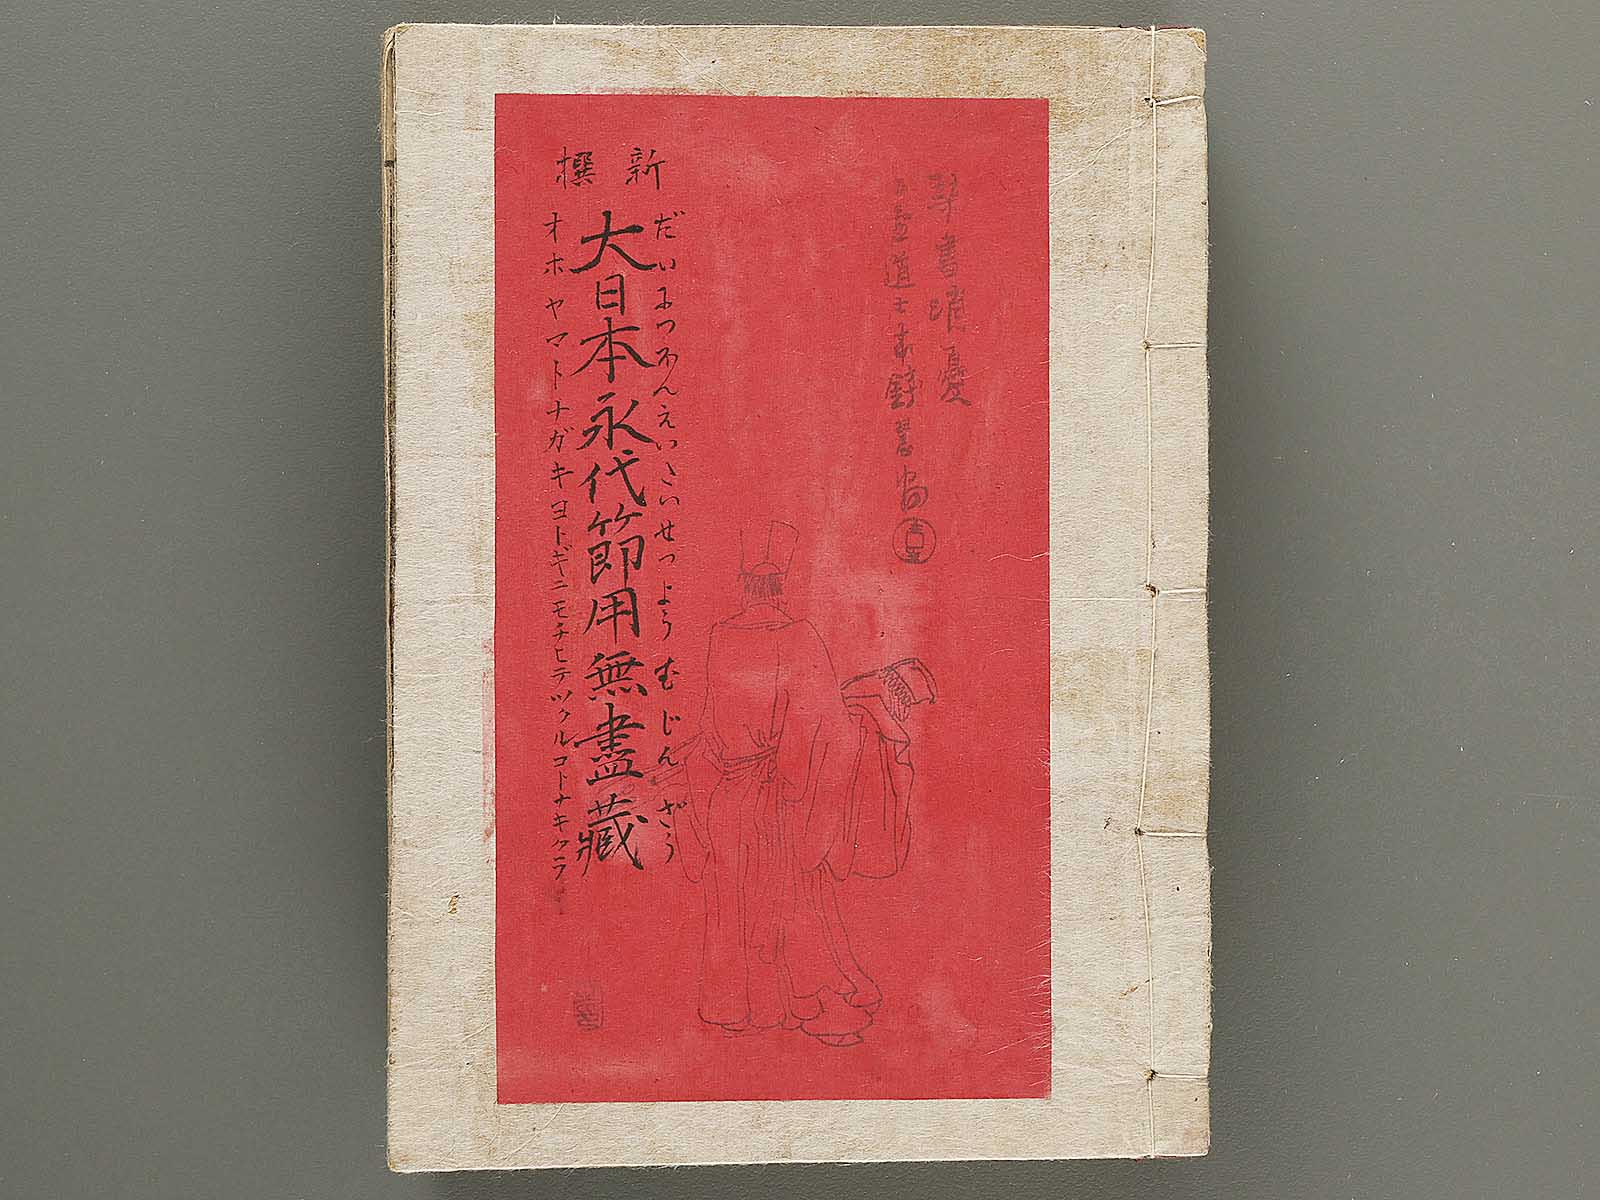 琴書消憂
道士
新撰
だいにつほんえいたいせつようむじんざう
大日本永代節用無盡藏
オホヤマトナガキヨトギニモチヒテツクルコトナキクラ